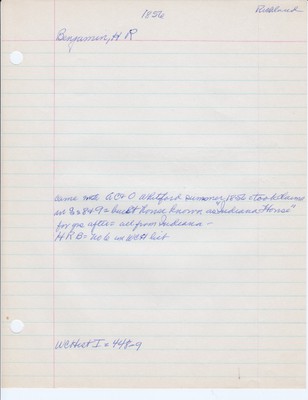 1856
Benjamin, H R
came with A C & O Whitford summer 1856 & took land
in 8 & 9 = built house known as "Indiana House"
for yrs after all from Indiana –
H R B = no 6 in WCH list
WCHist I = 448-9